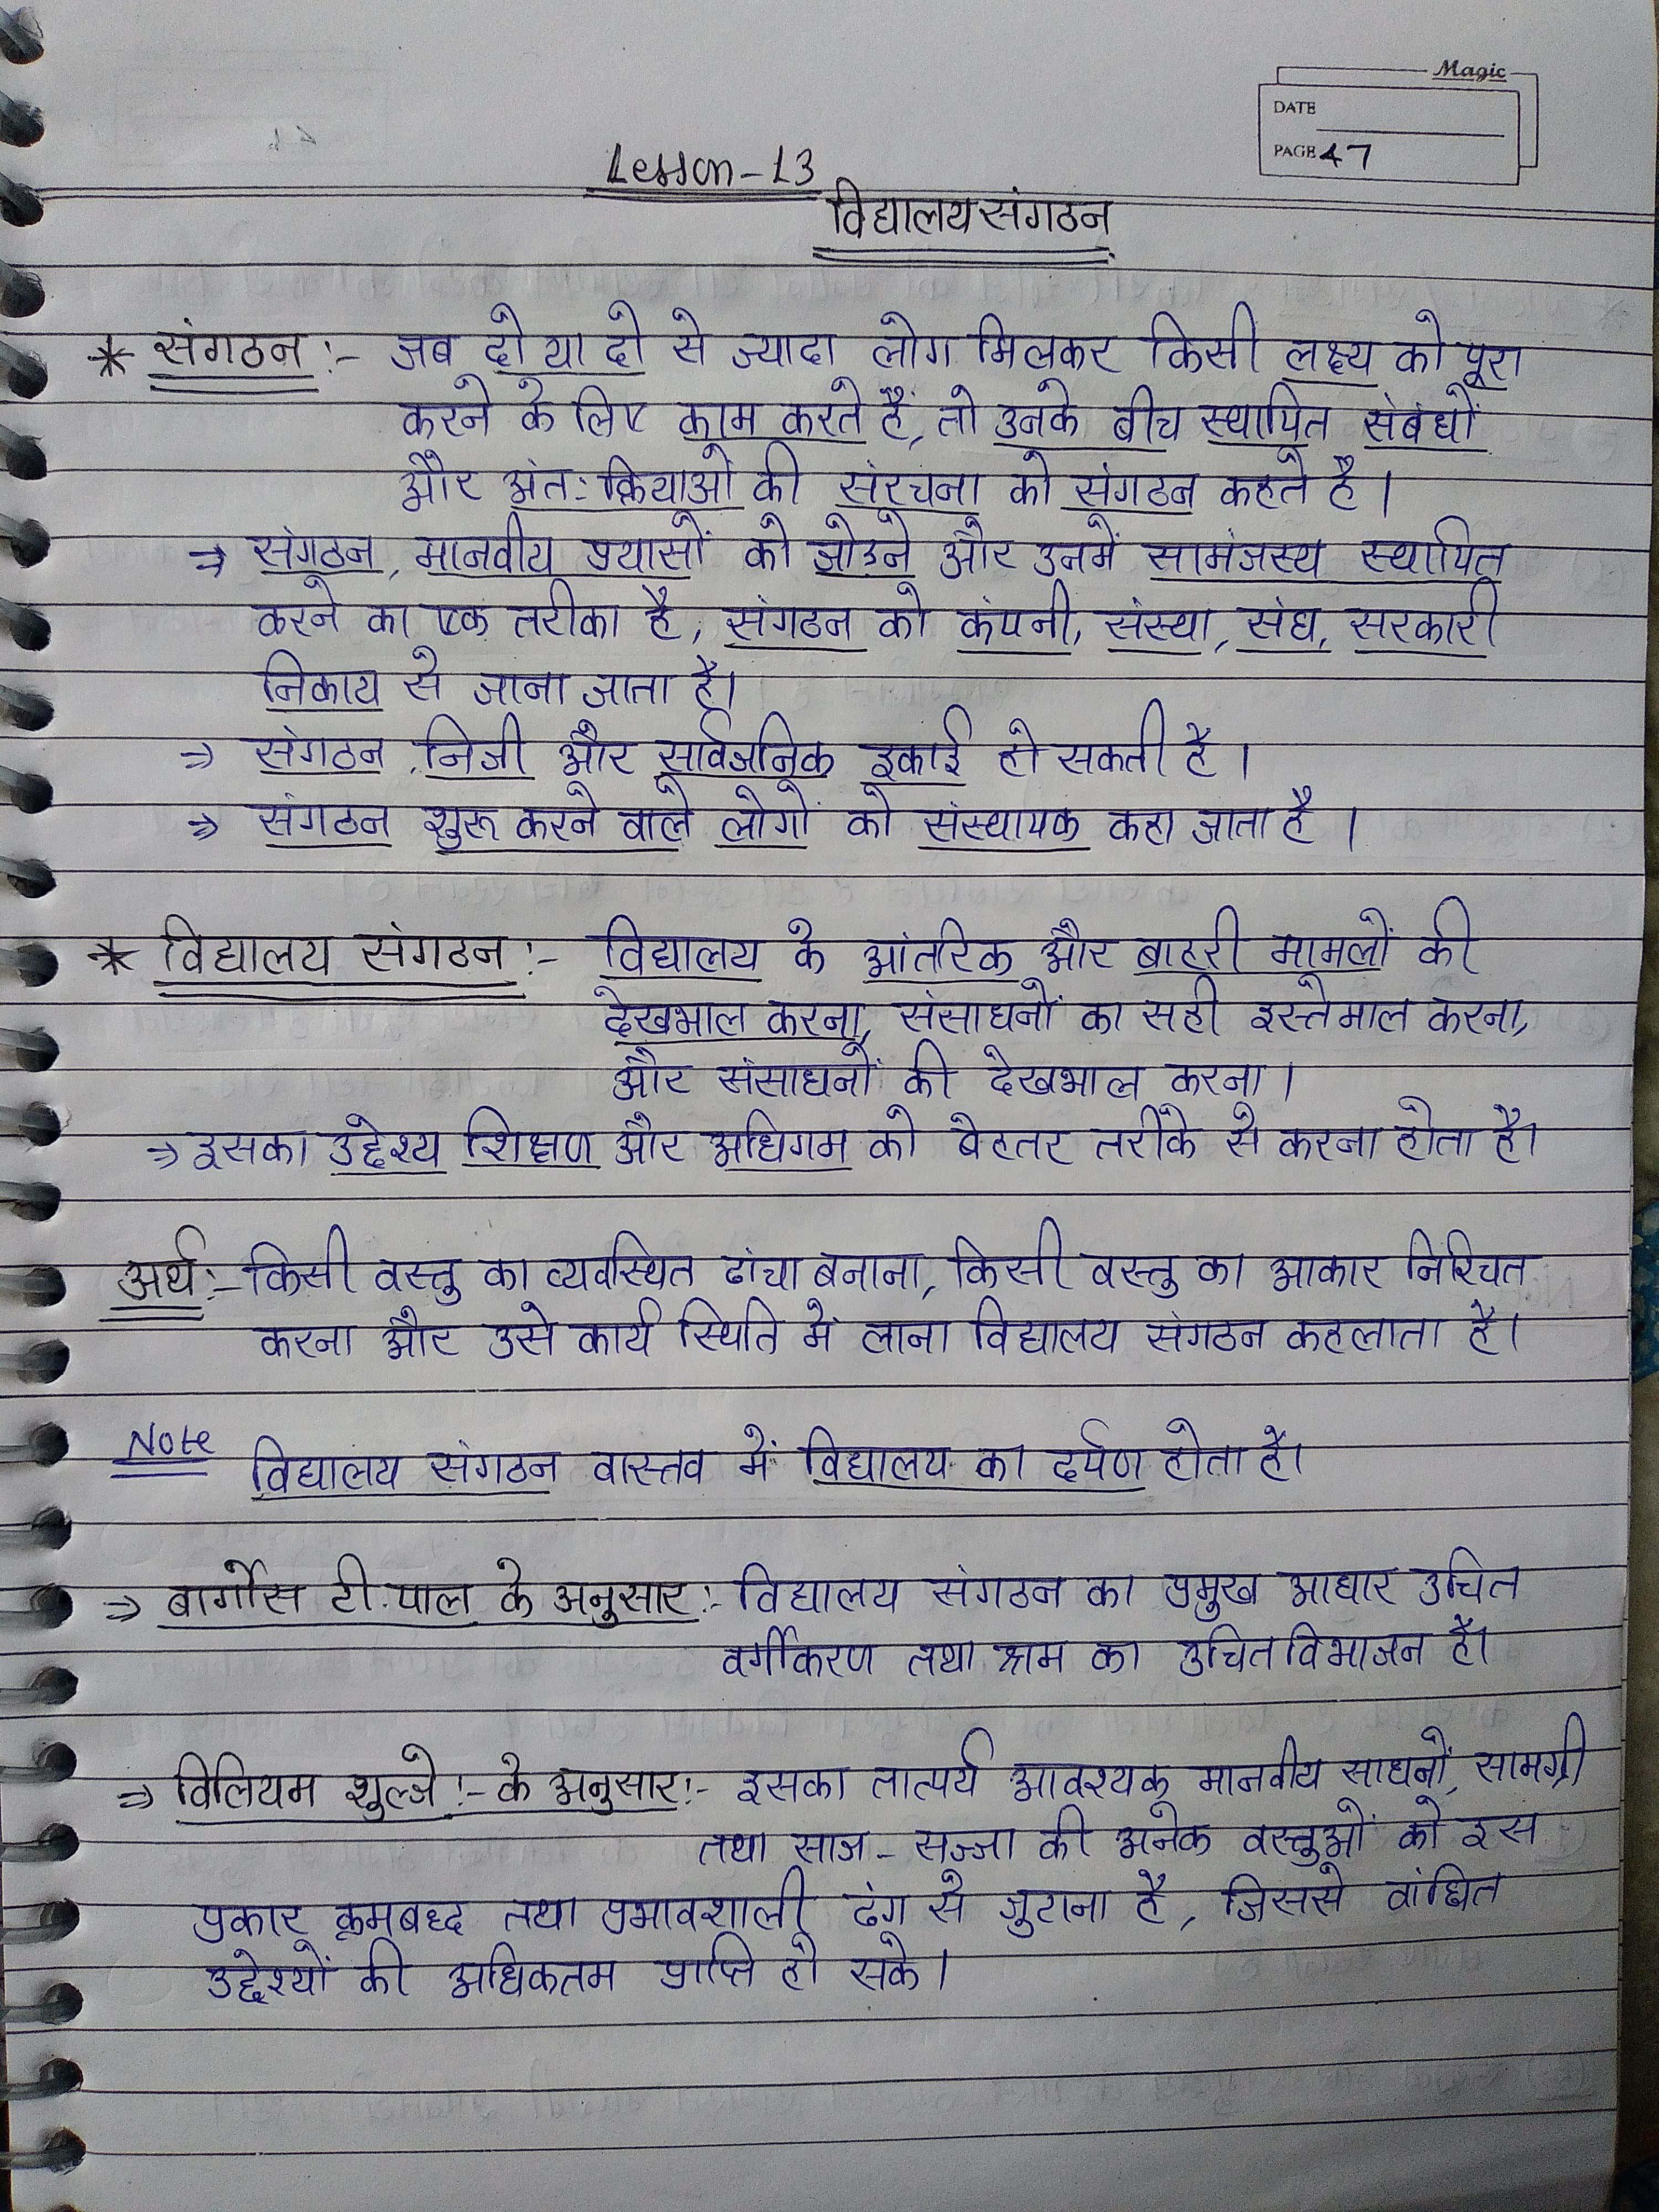 Magic
DATE
PAGE 47
Lesson-13
विद्यालय संगठन
* संगठन :- जब दो या दो से ज्यादा लोग मिलकर किसी लक्ष्य को पूरा
करने के लिए काम करते हैं, तो उनके बीच स्थापित संबंधों
और अंत: क्रियाओं की संरचना को संगठन कहते है।
⇒ संगठन, मानवीय प्रयासों को जोडने और उनमें सामंजस्य स्थापित
करने का एक तरीका है, संगठन को कंपनी, संस्था, संघ, सरकारी
निकाय से जाना जाता है।
⇒ संगठन, निजी और सार्वजनिक इकाई हो सकती है।
⇒ संगठन शुरू करने वाले लोगों को संस्थापक कहा जाता है।
* विद्यालय संगठन :- विद्यालय के आंतरिक और बाहरी मामलों की
देखभाल करना, संसाधनों का सही इस्तेमाल करना,
और संसाधनों की देखभाल करना।
⇒ इसका उद्देश्य शिक्षण और अधिगम को बेहतर तरीके से करना होता है।
अर्थ :- किसी वस्तु का व्यवस्थित ढांचा बनाना, किसी वस्तु का आकार निश्चित
करना और उसे कार्य स्थिति में लाना विद्यालय संगठन कहलाता है।
Note
विद्यालय संगठन वास्तव में विद्यालय का दर्पण होता है।
⇒ बार्गोस टी. पाल के अनुसार :- विद्यालय संगठन का प्रमुख आधार उचित
वर्गीकरण तथा श्रम का उचित विभाजन है।
⇒ विलियम शुल्जे :- के अनुसार :- इसका तात्पर्य आवश्यक मानवीय साधनों, सामग्री
तथा साज - सज्जा की अनेक वस्तुओं को इस
प्रकार क्रमबद्ध तथा प्रभावशाली ढंग से जुटाना है, जिससे वांछित
उद्देश्यों की अधिकतम प्राप्ति हो सके।